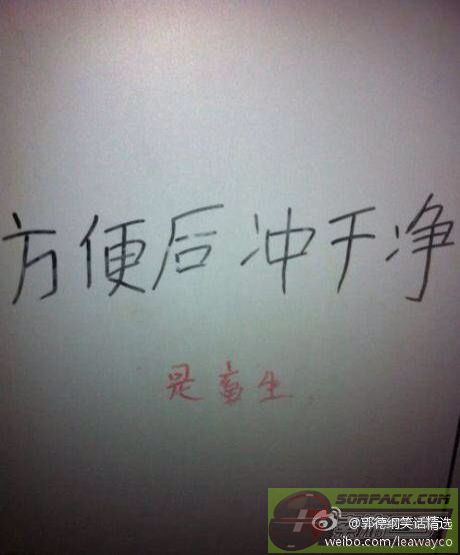 方便后冲干净
是畜生
SORPACK.COM
@郭德纲笑话精选
weibo.com/leawayco